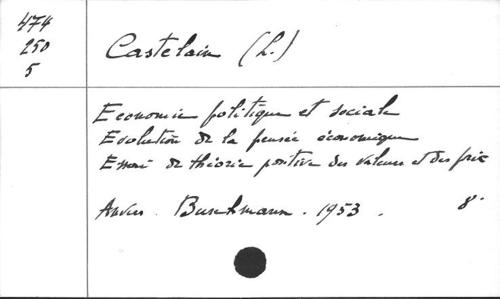 474
250
5
Castelain (L.)
Economie politique et sociale
Evolution de la pensée économique
Essai de théorie positive des valeurs et des prix
Anvers. Buschmann. 1953. 8°